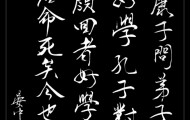 康子問弟子
好學孔子對
顏回者好學
命死矣今也